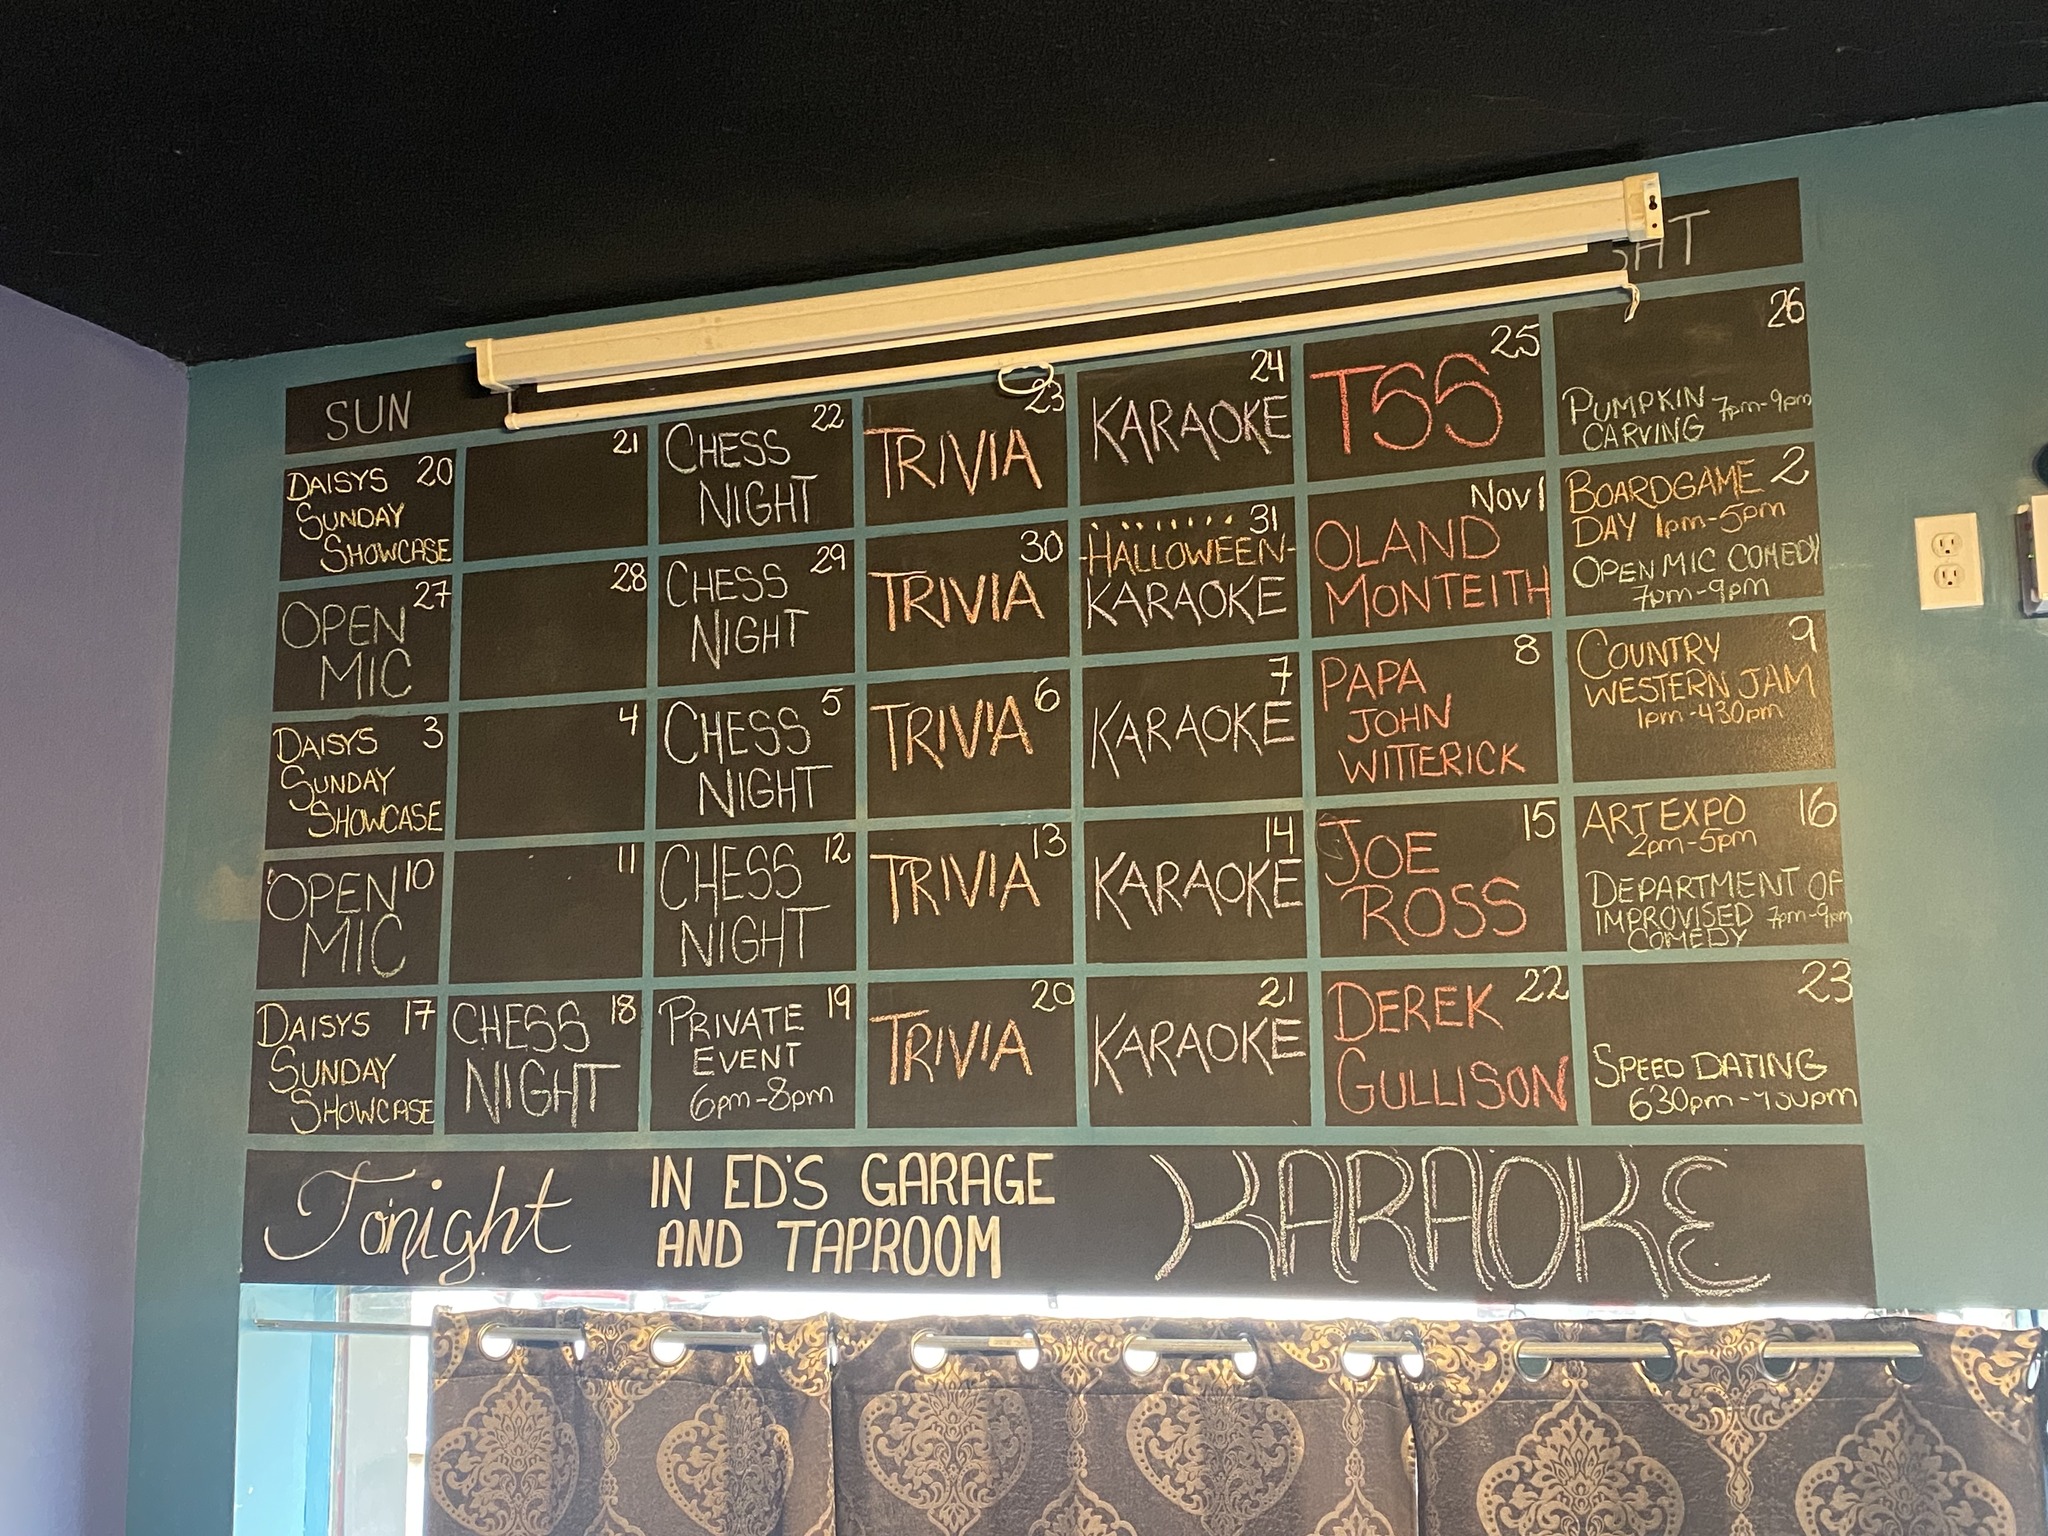 HT
SUN
20
DAISYS
SUNDAY
SHOWCASE
21
22
CHESS
NIGHT
23
TRIVIA
24
KARAOKE
25
TSS
26
PUMPKIN 7pm-9pm
CARVING
27
OPEN
MIC
28
29
CHESS
NIGHT
30
TRIVIA
31
-HALLOWEEN-
KARAOKE
Nov 1
OLAND
MONTEITH
BOARDGAME 2
DAY 1pm-5pm
OPEN MIC COMEDY
7pm-9pm
DAISYS 3
SUNDAY
SHOWCASE
4
CHESS 5
NIGHT
TRIVIA 6
7
KARAOKE
8
PAPA
JOHN
WITTERICK
COUNTRY 9
WESTERN JAM
1pm-430pm
OPEN 10
MIC
11
CHESS 12
NIGHT
TRIVIA 13
14
KARAOKE
JOE 15
ROSS
ART EXPO 16
2pm-5pm
DEPARTMENT OF
IMPROVISED 7pm-9pm
COMEDY
DAISYS 17
SUNDAY
SHOWCASE
CHESS 18
NIGHT
PRIVATE 19
EVENT
6pm-8pm
20
TRIVIA
21
KARAOKE
DEREK 22
GULLISON
23
SPEED DATING
630pm-
Tonight
IN ED'S GARAGE
AND TAPROOM
KARAOKE